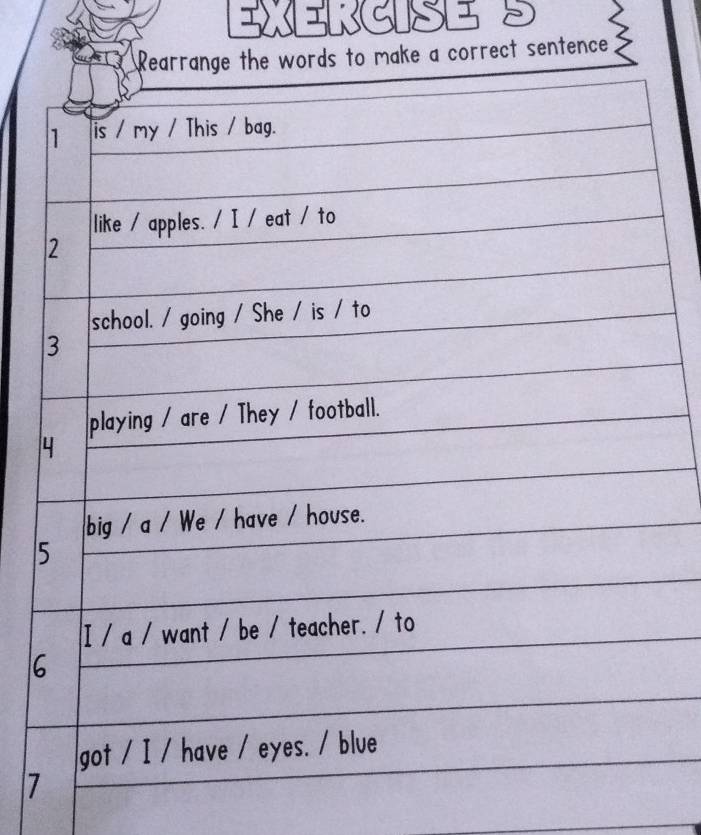 EXERCISE 5
Rearrange the words to make a correct sentence
1 is / my / This / bag.
2 like / apples. / I / eat / to
3 school. / going / She / is / to
4 playing / are / They / football.
5 big / a / We / have / house.
6 I / a / want / be / teacher. / to
7 got / I / have / eyes. / blue